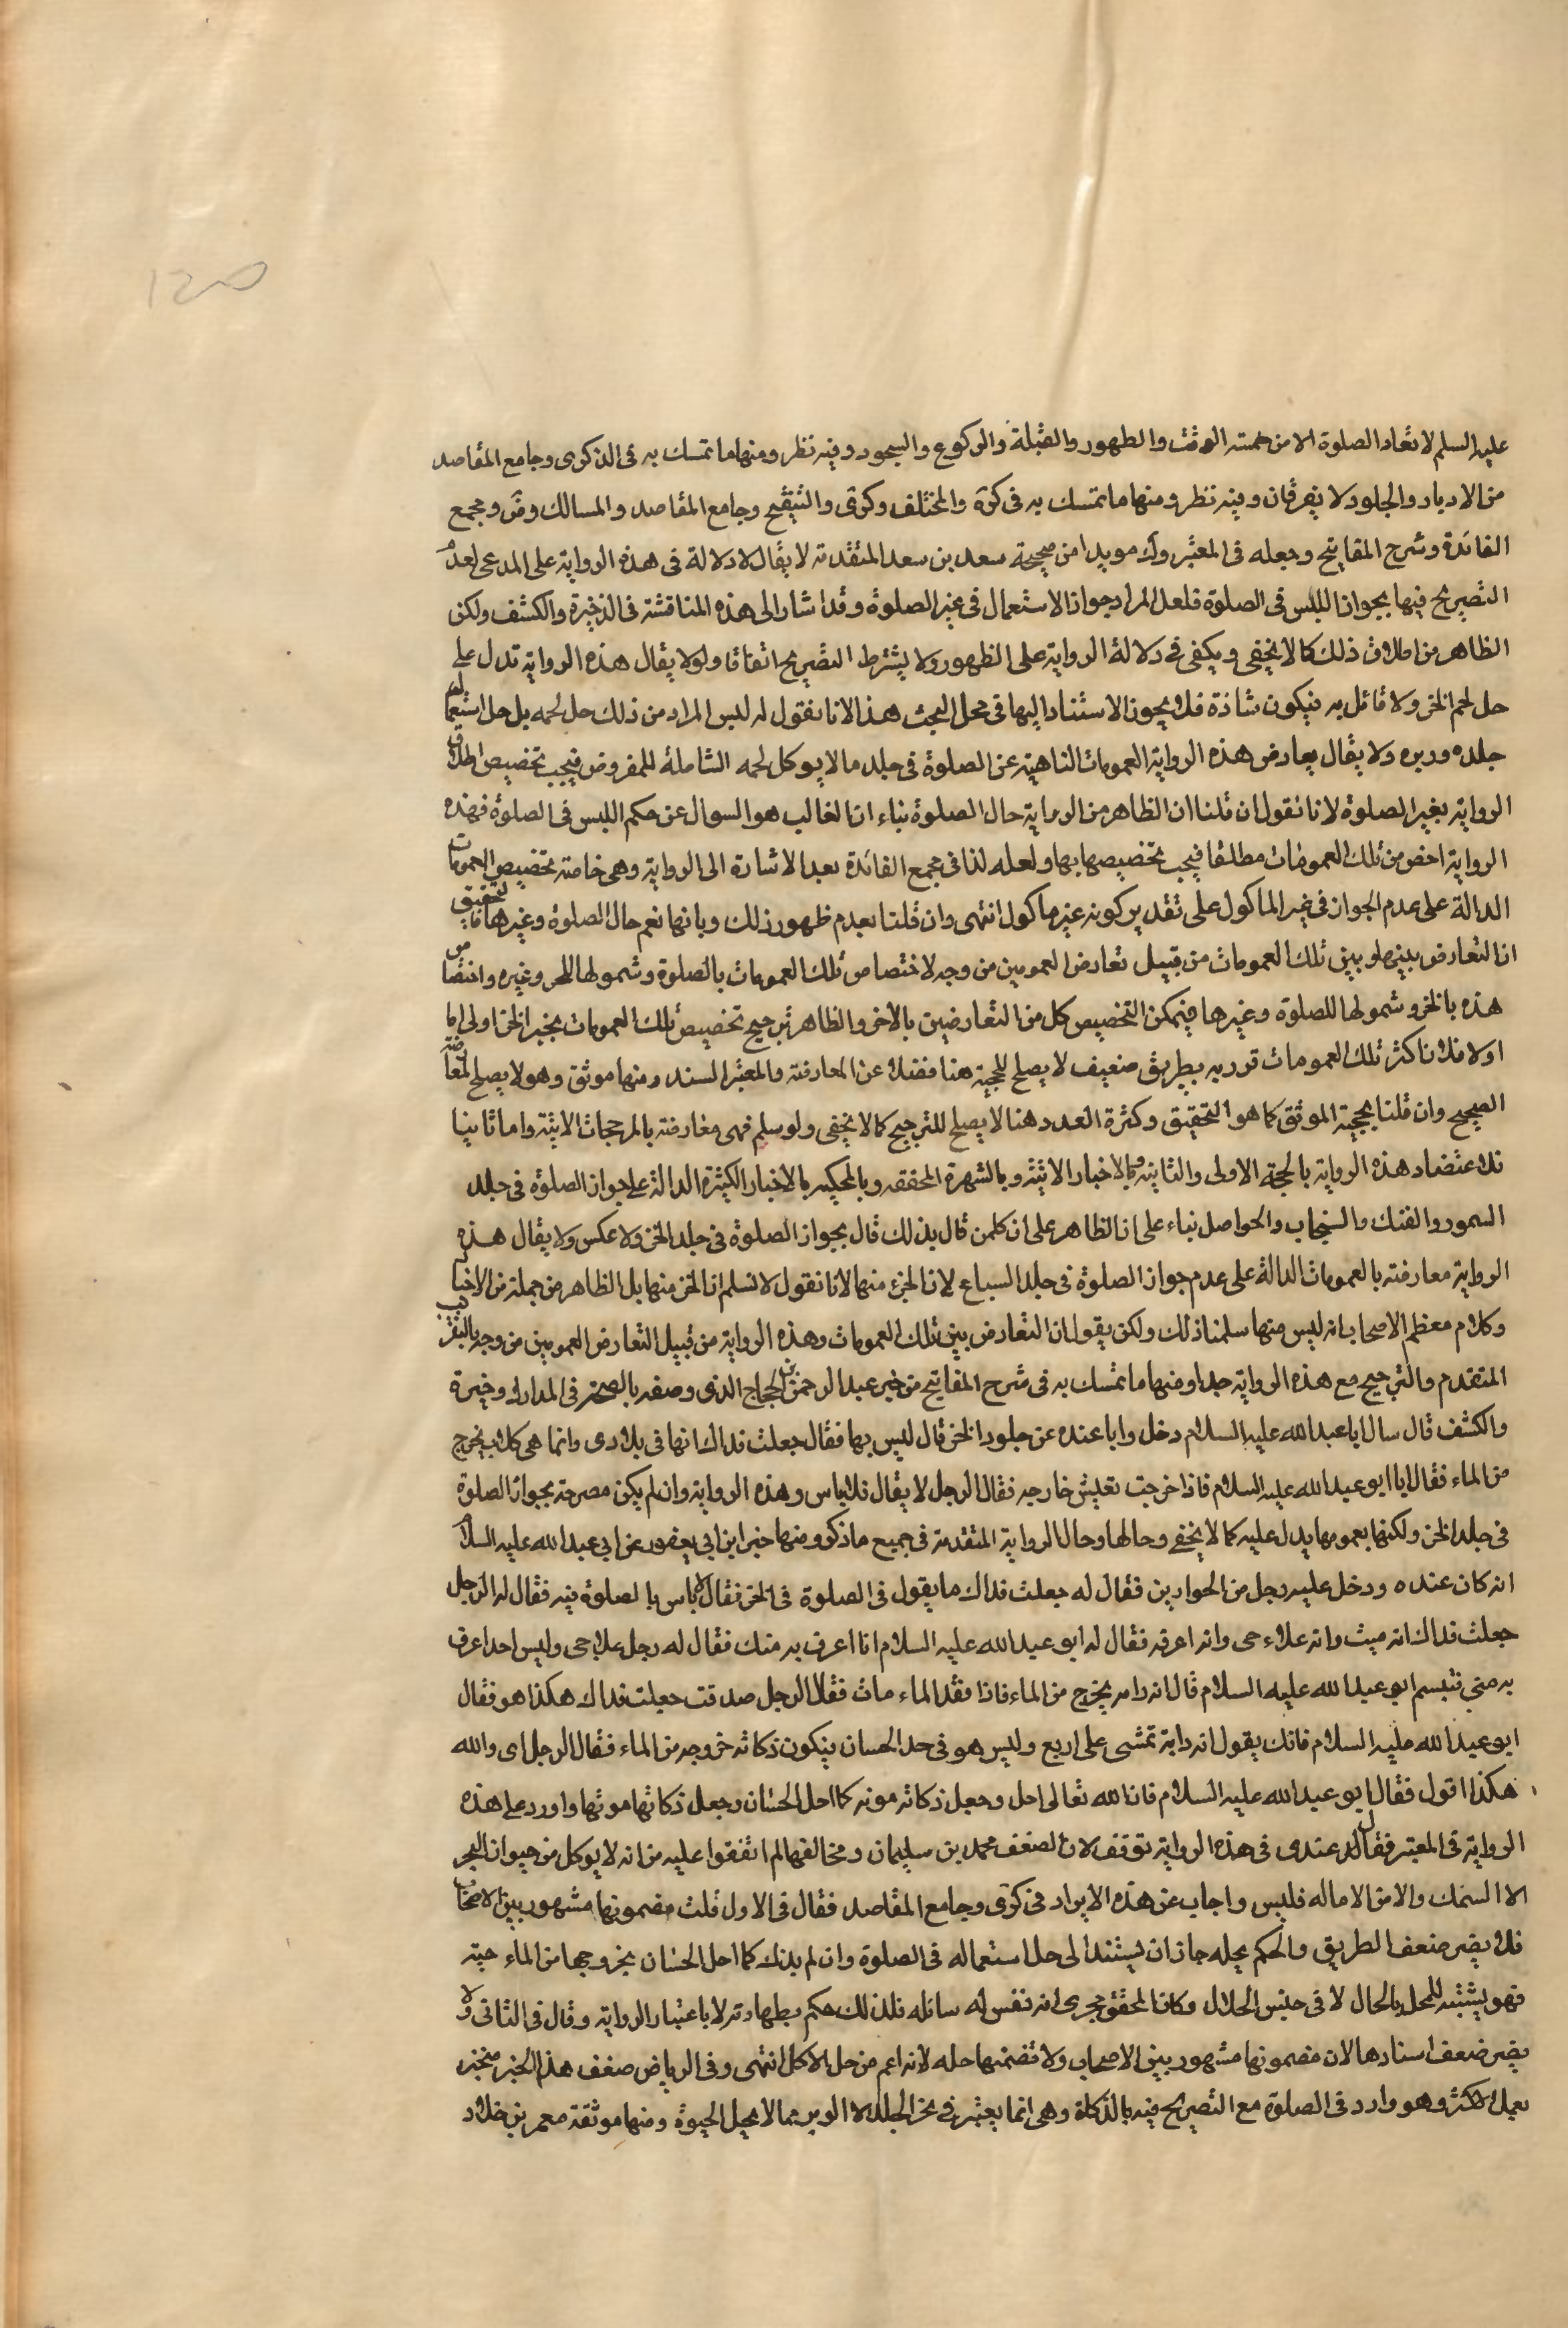 عليه السلم لا تعاد الصلوة الا من خمسة الوقت والطهور والقبلة والركوع والسجود وفيه نظر ومنها ما تمسك به فى الذكرى وجامع المقاصد
من الادبار والجلود لا يفرقان وفيه نظر ومنها ما تمسك به فى كرة والمختلف وكرى والتنقيح وجامع المقاصد والمسالك وض ومجمع
الفائدة وشرح المفاتيح وجعله فى المعتبر وك مويدا من صحيحة سعد بن سعد المتقدمة لا يقال لا دلالة فى هذه الرواية على المدعى لعدم
التصريح فيها بجواز اللبس فى الصلوة فلعل المراد جواز الاستعمال فى غير الصلوة وقد اشار الى هذه المناقشة فى الذخيرة والكشف ولكن
الظاهر من اطلاق ذلك كما لا يخفى ويكفى فى دلالة الرواية على الظهور ولا يشترط التصريح اتفاقا ولو لا يقال هذه الرواية تدل على
حل لحم الخز ولا قائل به فيكون شاذة فلا يجوز الاستناد اليها فى محل البحث هذا لانا نقول له ليس المراد من ذلك حل لحمه بل حل استعمال
جلده ووبره ولا يقال يعارض هذه الرواية العمومات الناهية عن الصلوة فى جلد ما لا يوكل لحمه الشاملة للمفروض فيجب تخصيص اطلاق
الرواية بغير الصلوة لانا نقول ان قلنا ان الظاهر من الرواية حال الصلوة بناء ان الغالب هو السوال عن حكم اللبس فى الصلوة فهذه
الرواية اخص من تلك العمومات مطلقا فيجب تخصيصها بها ولعله لذا فى مجمع الفائدة بعد الاشارة الى الرواية وهى خاصة بتخصيص العمومات
الدالة على عدم الجواز فى غير الماكول على تقدير كونه غير ماكول انتهى وان قلنا بعدم ظهور ذلك وبانها نعم حال الصلوة وغيرها فالتحقيق
ان التعارض بينه وبين تلك العمومات من قبيل تعارض العمومين من وجه لاختصاص تلك العمومات بالصلوة وشمولها للخز وغيره واختصاص
هذه بالخز وشمولها للصلوة وغيرها فيمكن التخصيص كل من التعارضين بالاخر والظاهر ترجيح تخصيص تلك العمومات بخبر الخز اولى اما
اولا فلان اكثر تلك العمومات قد ورد بطريق ضعيف لا يصلح للحجية هنا فضلا عن المعارضة والمعتبر السند ومنها موثق وهو لا يصلح لمعارضة
الصحيح وان قلنا بحجية الموثق كما هو التحقيق وكثرة العدد هنا لا يصلح للترجيح كما لا يخفى ولو سلم فهى معارضة بالمرجحات الاتية واما ثانيا
فلاعتضاد هذه الرواية بالحجة الاولى والثانية وبالاخبار الاتية وبالشهرة المحققة وبالمحكية بالاخبار الكثيرة الدالة على جواز الصلوة فى جلد
السمور والفنك والسنجاب والحواصل بناء على ان الظاهر على ان كلمن قال بذلك قال بجواز الصلوة فى جلد الخز ولا عكس ولا يقال هذه
الرواية معارضة بالعمومات الدالة على عدم جواز الصلوة فى جلد السباع لان الخز منها لانا نقول لا نسلم ان الخز منها بل الظاهر من جملة من الاخبار
وكلام معظم الاصحاب انه ليس منها سلمنا ذلك ولكن يقول ان التعارض بين تلك العمومات وهذه الرواية من قبيل التعارض العمومين من وجه بالتقريب
المتقدم والترجيح مع هذه الرواية جدا ومنها ما تمسك به فى شرح المفاتيح من خبر عبد الرحمن بن الحجاج الذى وصفه بالصحة فى المدارك وخيرة
والكشف قال سال ابا عبد الله عليه السلام دخل وابا عنده عن جلود الخز قال ليس بها فقال جعلت فداك انها فى بلادى وانما هى كلاب يخرج
من الماء فقال ايا ابو عبد الله عليه السلام فاذا خرجت تعيش خارجه فقال الرجل لا يقال فلا باس وهذه الرواية وان لم يكن مصرحة بجواز الصلوة
فى جلد الخز ولكنها بعمومها يدل عليه كما لا يخفى وحالها وحال الرواية المتقدمة فى جميع ما ذكر ومنها خبر ابن ابى يعفور عن ابى عبد الله عليه السلام
انه كان عنده ودخل عليه رجل من الحوارين فقال له جعلت فداك ما يقول فى الصلوة فى الخز فقال لا باس بالصلوة فيه فقال له الرجل
جعلت فداك انه ميت وانه علاء حى وانه اعرفه فقال له ابو عبد الله عليه السلام انا اعرف به منك فقال له رجل علاجى وليس احد اعرف
به منى فتبسم ابو عبد الله عليه السلام قال انه دابة يخرج من الماء فاذا فقد الماء مات فقال الرجل صدقت جعلت فداك هكذا هو فقال
ابو عبد الله عليه السلام فانك يقول انه دابة تمشى على اربع وليس هو فى حد الحسان فيكون ذكاته خروجه من الماء فقال الرجل اى والله
هكذا اقول فقال ابو عبد الله عليه السلام فان الله تعالى احل وجعل ذكاته موته كما احل الحيتان وجعل ذكاتها موتها واورد على هذه
الرواية فى المعتبر فقال له عندى فى هذه الرواية توقف لان لضعف محمد بن سليمان ومخالفها لم اتفقوا عليه من انه لا يوكل من حيوان البحر
الا السمك والا من الا ماله فلبس واجاب عن هذه الايراد فى كرى وجامع المقاصد فقال فى الاول قلت مضمونها مشهور بين الاصحاب
فلا يضر ضعف الطريق والحكم بحله جاز ان يستند الى حل استعماله فى الصلوة وان لم يذك كما احل الحيتان بخروجها من الماء حية
فهو يشتبه للمحل بالحال لا فى جنس الحلال وكان المحقق جرى انه نفس له سائله فلذلك حكم بطهارته لا باعتبار الرواية وقال فى الثانى ولا
يضر ضعف اسنادها لان مضمونها مشهور بين الاصحاب ولا تضمنها حله لانه اعم من حل الاكل انتهى وفى الرياض ضعف هذا الخبر منجبر
بعمل الاكثر وهو وارد فى الصلوة مع التصريح فيه بالذكاة وهى انما يعتبر فى نحو الجلد لا الوبر مما لا يحل الحيوة ومنها موثقة معمر بن خلاد